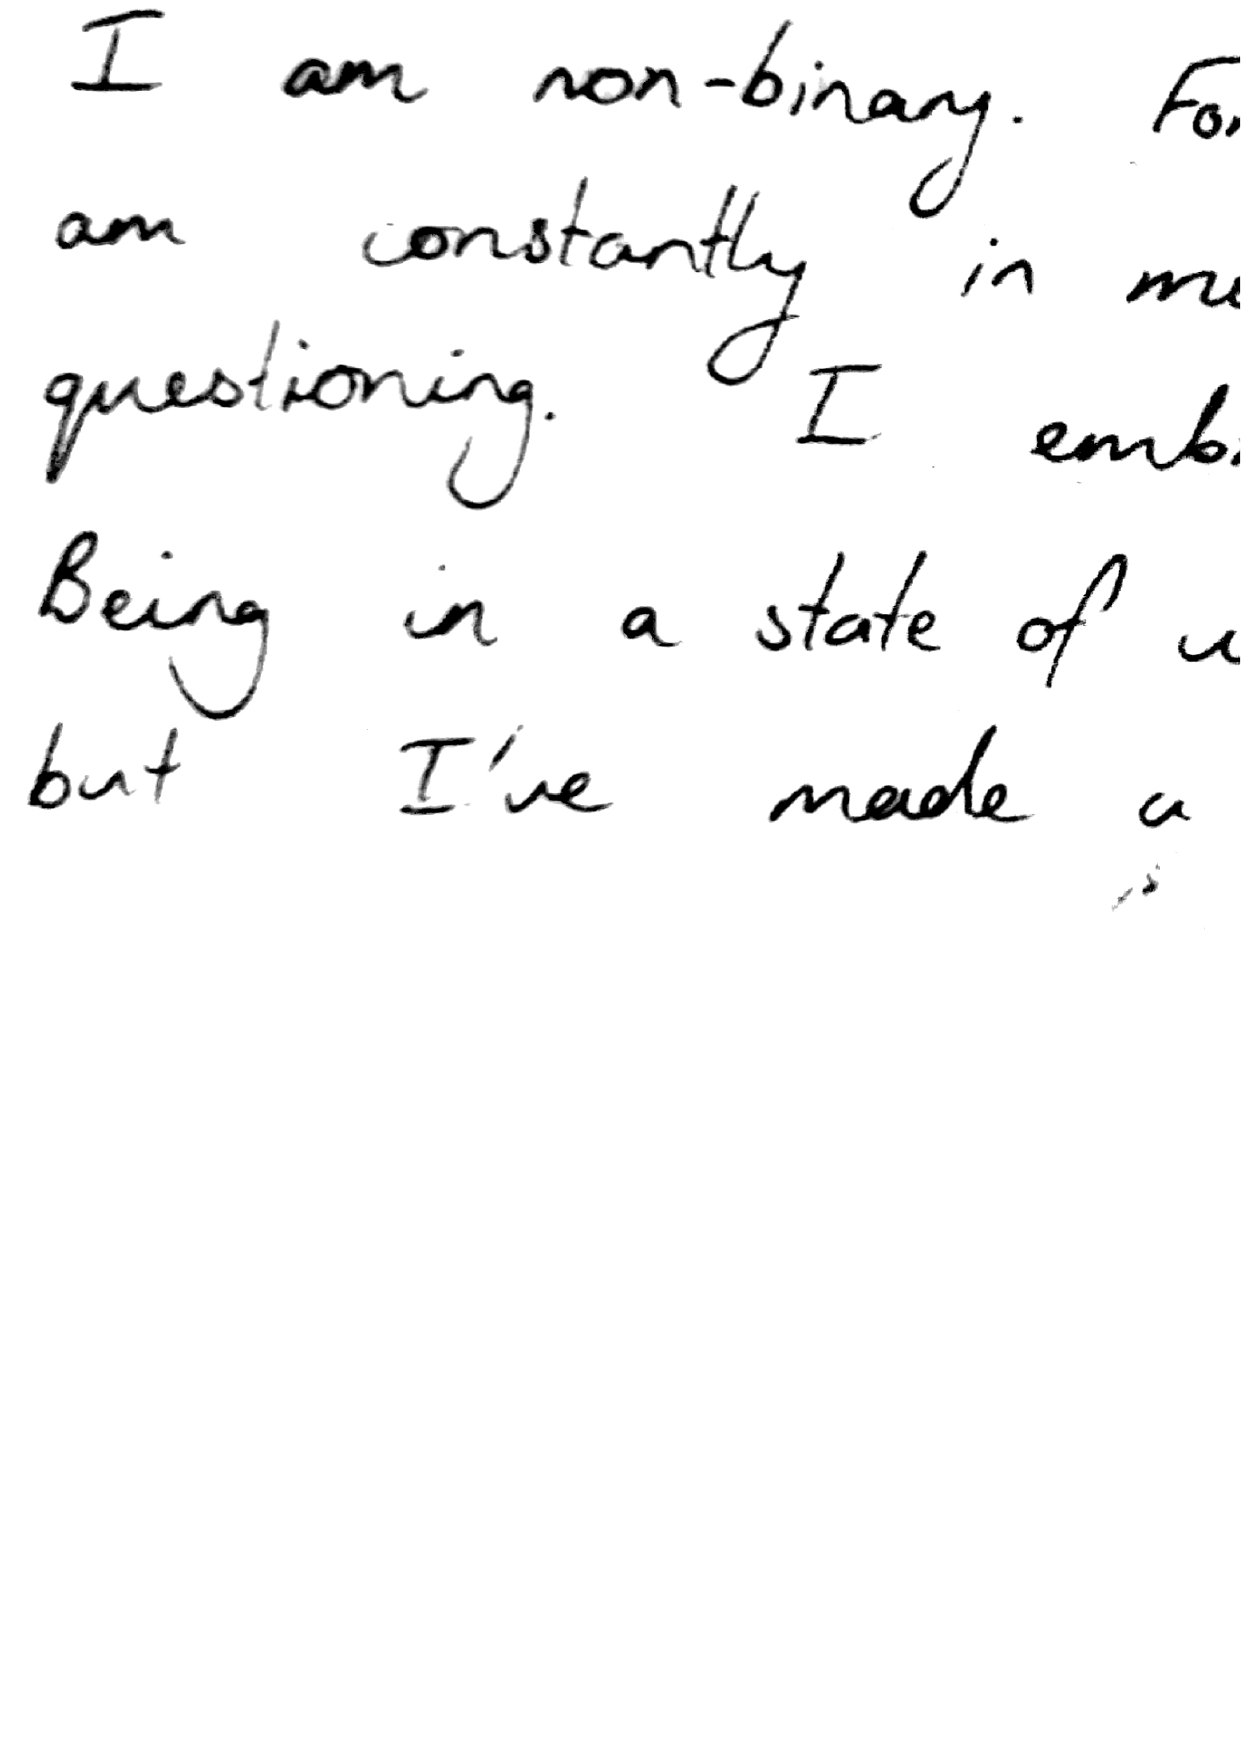 I am non-binary. For
am constantly in
questioning. I
Being in a state of
but I've made a